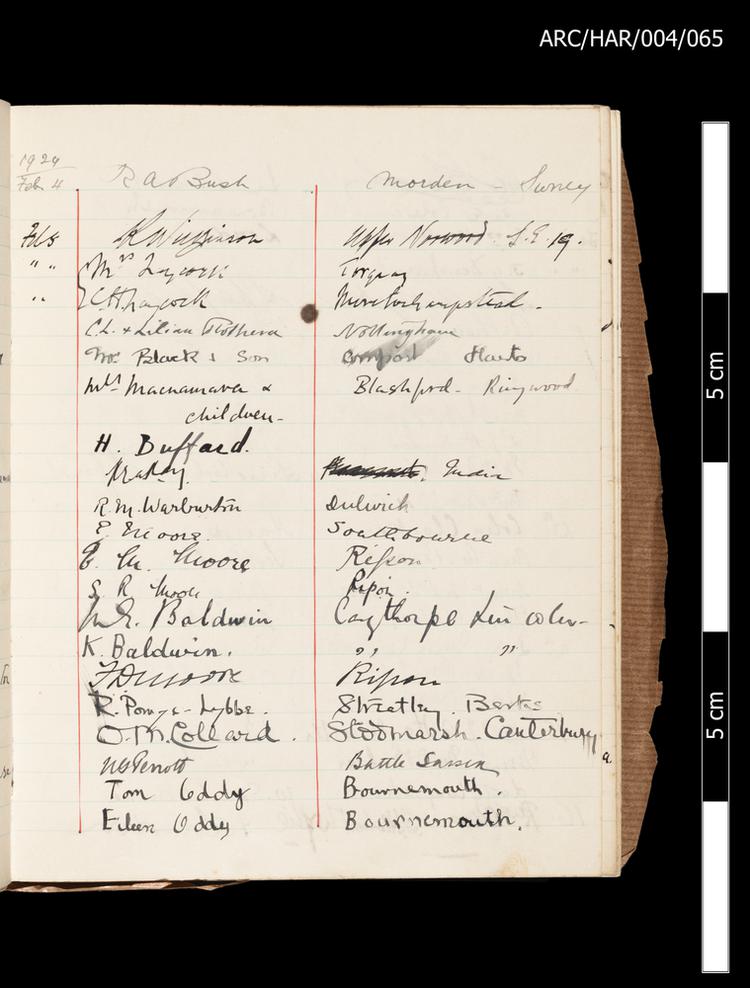 ARC/HAR/004/065
1924
Feb 4 R A Bush Morden - Surrey
Feb 5 Upper Norwood. S.E. 19.
" " Mrs Laycock Torquay
" C H Laycock
C.L. & Lilian Rothera Nottingham
Mrs Black & Son Hants
Mrs Macnamara & Blashford - Ringwood
children -
H. Buffard.
India
R. M. Warburton Dulwich
E. Moore. Southbourne
E. M. Moore Ripon
E R Moore Ripon.
Baldwin Caythorpe Lincoln -
K. Baldwin. " "
F D Moore Ripon
R. Powys-Lybbe. Streatley. Berks
O. M. Collard. Stodmarsh. Canterbury
Perrott Battle Sussex
Tom Oddy Bournemouth.
Eileen Oddy Bournemouth.
5 cm
5 cm